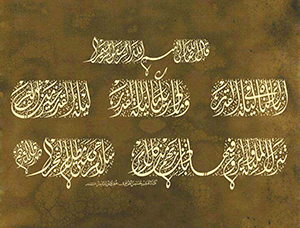 بسم الله الرحمن الرحيم
إنا أنزلناه في ليلة القدر وما أدراك ما ليلة القدر ليلة القدر خير من ألف شهر
تنزل الملائكة والروح فيها بإذن ربهم من كل أمر سلام هي حتى مطلع الفجر